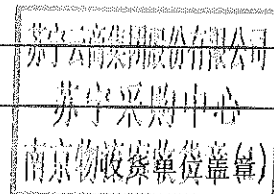 苏宁云商集团股份有限公司
苏宁采购中心
南京物
收货单位盖章)